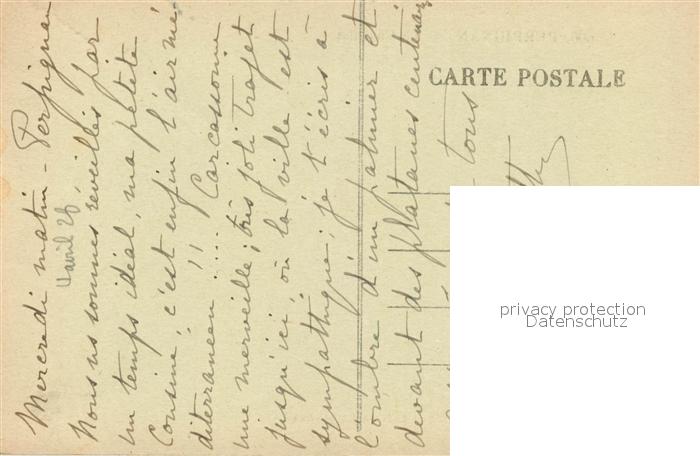 CARTE POSTALE
Mercredi matin - Perpignan
avril 26
Nous ns sommes réveillés par
un temps idéal, ma petite
Cousine, c'est enfin l'air mé
diterranéen !! .... Carcassonne
une merveille; très joli trajet
jusqu'ici, où la ville est
sympathique; je t'écris à
l'ombre d'un palmier et
devant des platanes centenai
tous
privacy protection
Datenschutz